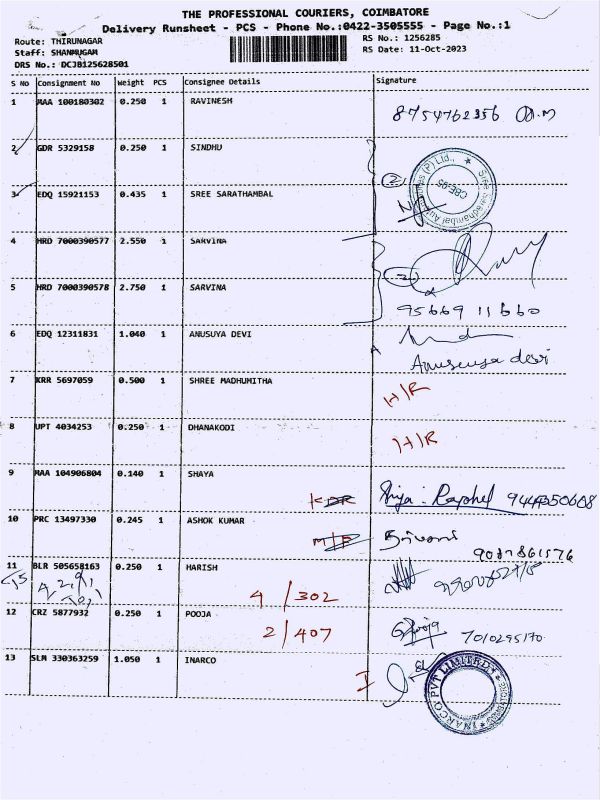 THE PROFESSIONAL COURIERS, COIMBATORE
Delivery Runsheet - PCS - Phone No.:0422-3505555 - Page No.:1
Route: THIRUNAGAR
RS No.: 1256285
Staff: SHANMUGAM
RS Date: 11-Oct-2023
DRS No.: DCJB125628501
S No Consignment No Weight PCS Consignee Details Signature
1 MAA 100180302 0.250 1 RAVINESH 8754762356
2 GDR 5329158 0.250 1 SINDHU
3 EDQ 15921153 0.435 1 SREE SARATHAMBAL 2
CBE-05
4 HRD 7000390577 2.550 1 SARVINA
5 HRD 7000390578 2.750 1 SARVINA 2
95669 11660
6 EDQ 12311831 1.040 1 ANUSUYA DEVI
Anusuya devi
7 KRR 5697059 0.500 1 SHREE MADHUMITHA H/R
8 UPT 4034253 0.250 1 DHANAKODI H/R
9 MAA 104906804 0.140 1 SHAYA
10 PRC 13497330 0.245 1 ASHOK KUMAR
11 BLR 505658163 0.250 1 HARISH
4/302
12 CRZ 5877932 0.250 1 POOJA Pooja 7010295170
2/407
13 SLM 330363259 1.050 1 INARCO I
INARCO PVT LIMITED